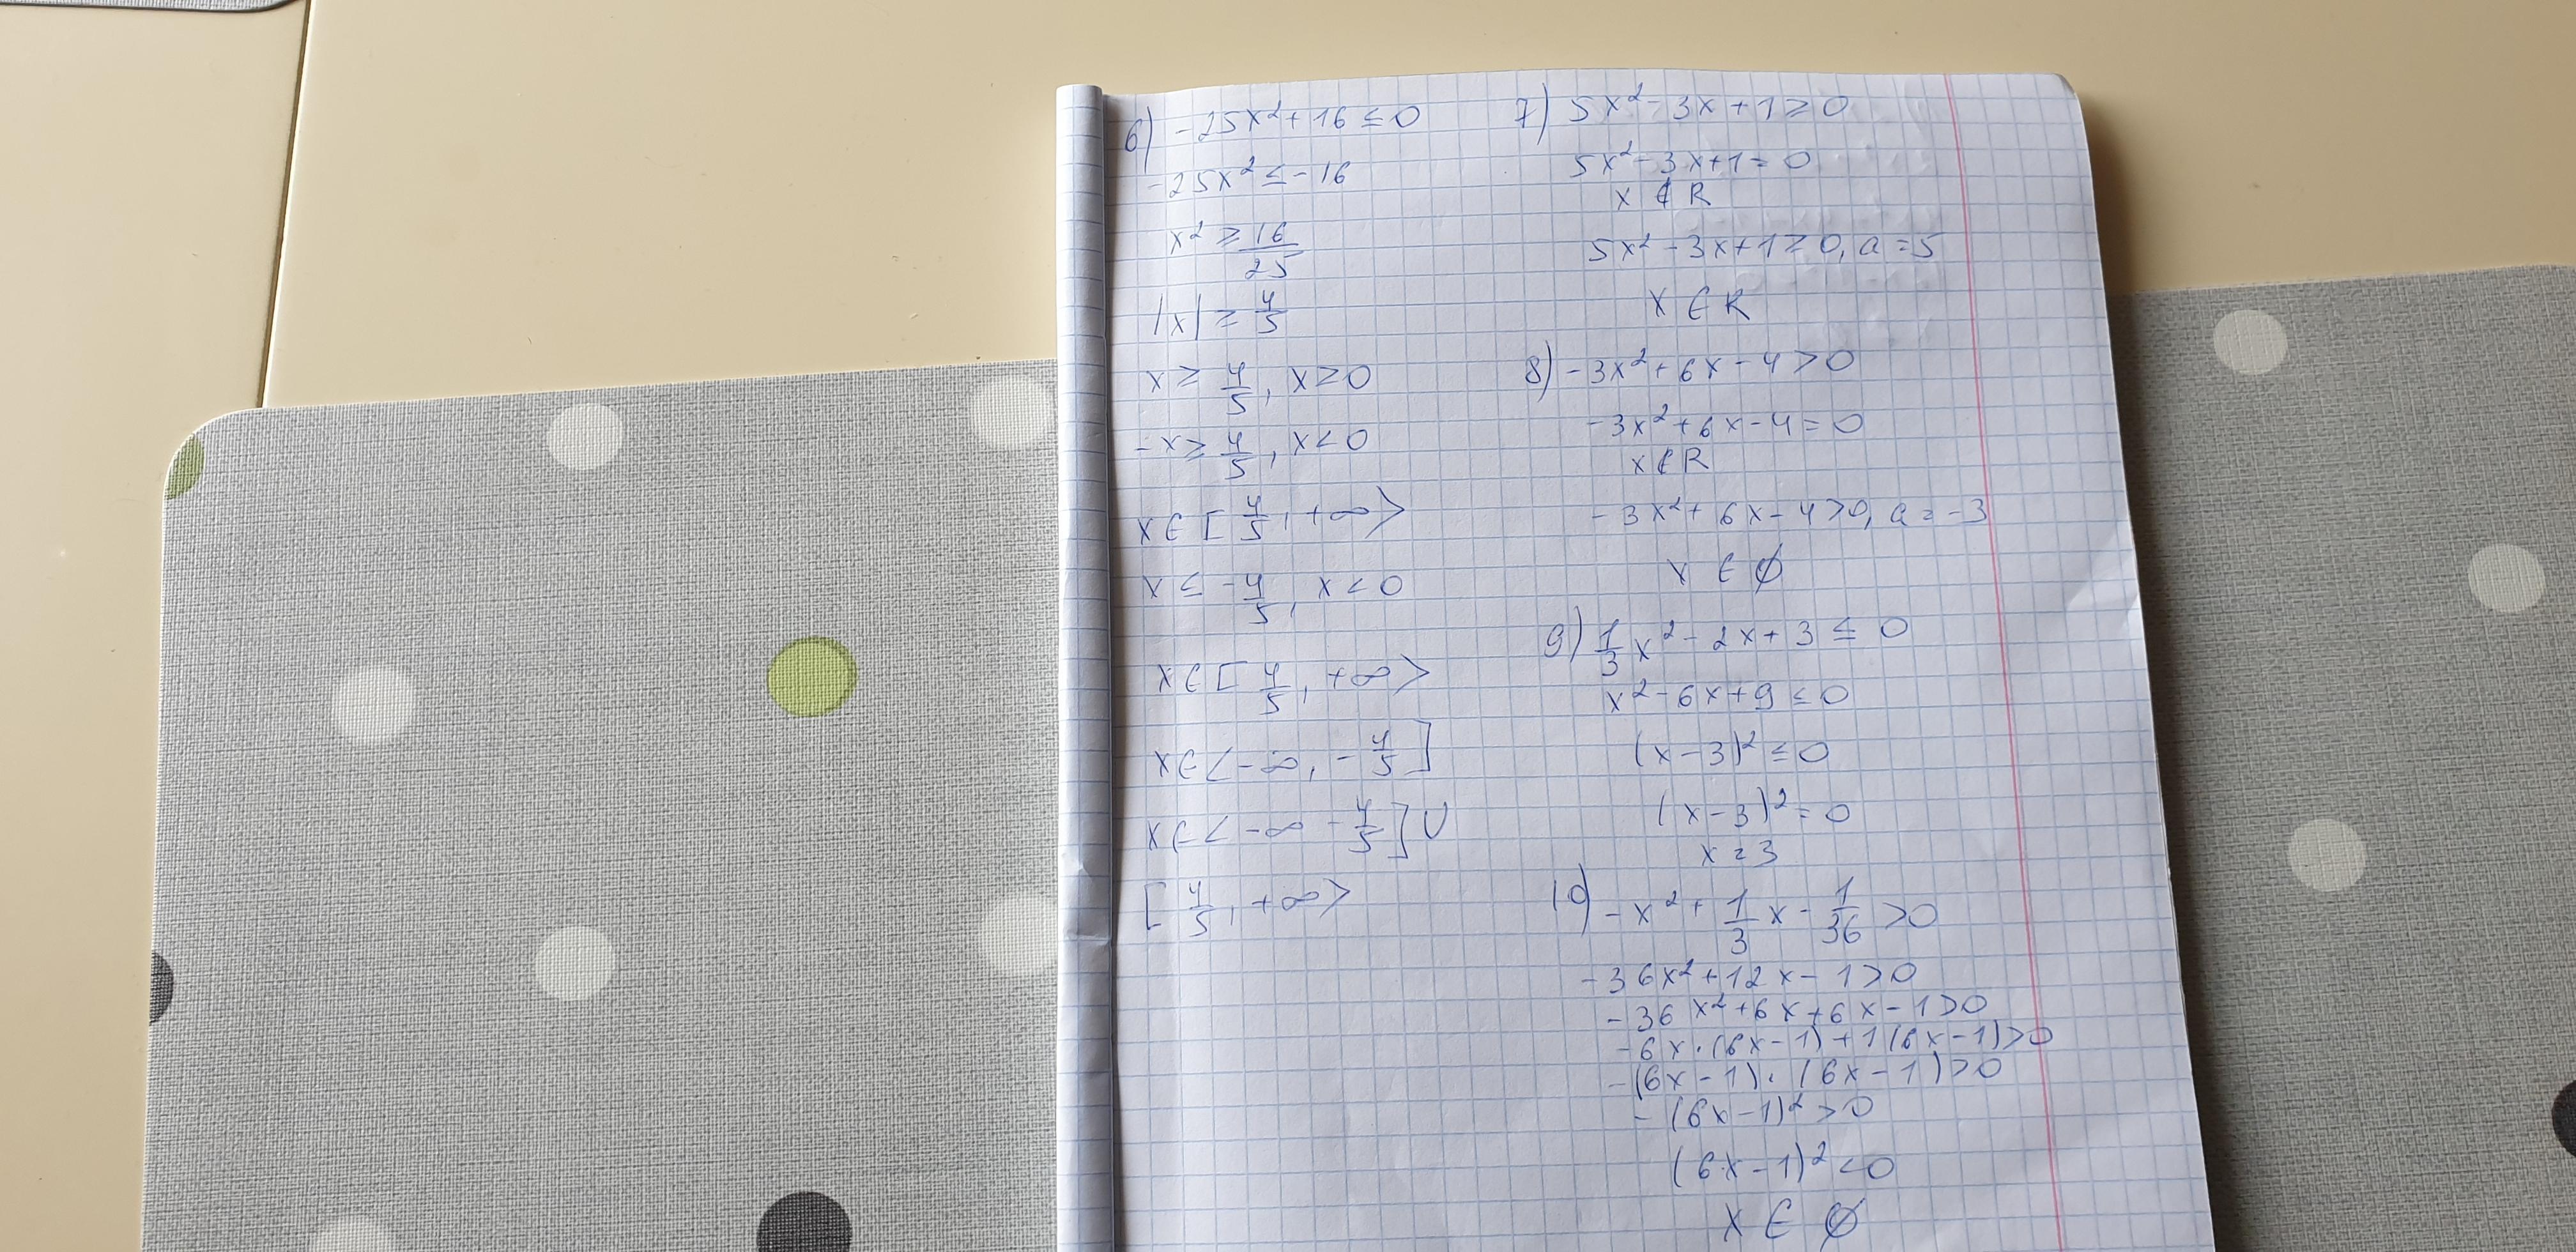 6) -25x²+16≤0
-25x²≤-16
x²≥16/25
|x|≥4/5
x≥4/5, x≥0
-x≥4/5, x<0
x∈[4/5, +∞>
x≤-4/5, x<0
x∈[4/5, +∞>
x∈<-∞, -4/5]
x∈<-∞ -4/5]∪
[4/5, +∞>
7) 5x²-3x+1≥0
5x²-3x+1=0
x∉R
5x²-3x+1≥0, a=5
x∈R
8) -3x²+6x-4>0
-3x²+6x-4=0
x∉R
-3x²+6x-4>0, a=-3
x∈∅
9) 1/3x²-2x+3≤0
x²-6x+9≤0
(x-3)²≤0
(x-3)²=0
x=3
10) -x²+1/3x-1/36>0
-36x²+12x-1>0
-36x²+6x+6x-1>0
-6x·(6x-1)+1(6x-1)>0
-(6x-1)·(6x-1)>0
-(6x-1)²>0
(6x-1)²<0
x∈∅